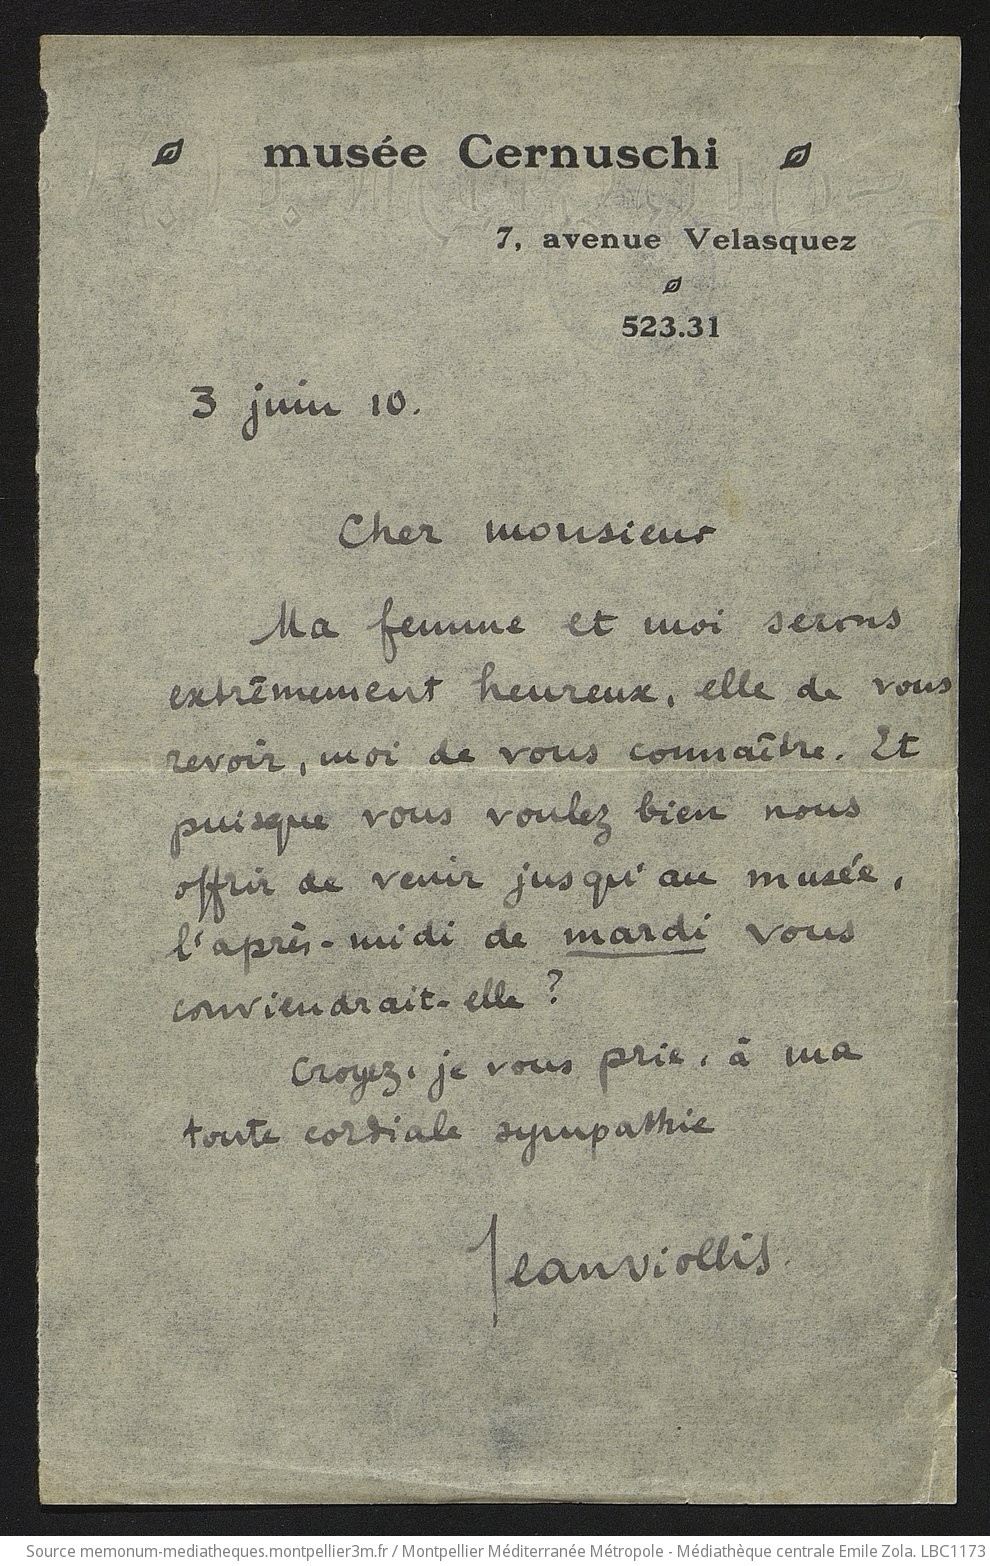 musée Cernuschi
7, avenue Velasquez
523.31
3 juin 10.
Cher monsieur
Ma femme et moi serons
extrêmement heureux, elle de vous
revoir, moi de vous connaître. Et
puisque vous voulez bien nous
offrir de venir jusqu'au musée,
l'après-midi de mardi vous
conviendrait-elle ?
Croyez, je vous prie, à ma
toute cordiale sympathie
Jean viollis.
Source memonum-mediatheques.montpellier3m.fr / Montpellier Méditerranée Métropole - Médiathèque centrale Emile Zola. LBC1173